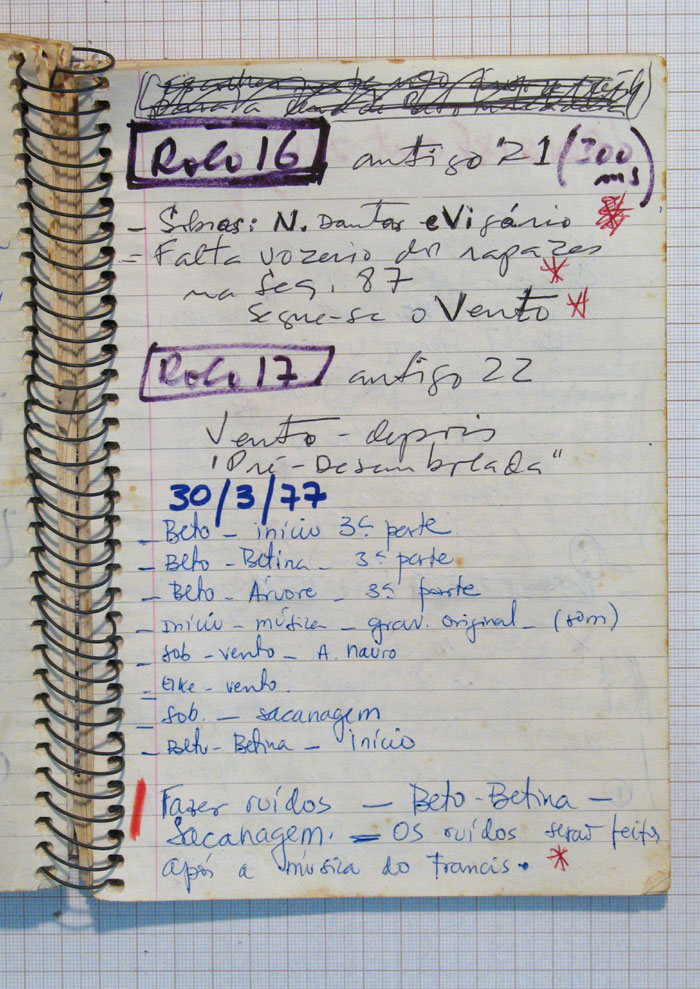 Rolo 16 antigo 21 (300 ms)
- Sobras: N. Dantas e Vigário
- Falta vozerio dos rapazes
na Seq. 87
Segue-se o Vento
Rolo 17 antigo 22
Vento - depois
"Pré-Desembolada"
30/3/77
- Beto - início 3ª parte
- Beto - Betina - 3ª parte
- Beto - Árvore - 3ª parte
- Início - música - grav. original - (som)
- Sob - vento - A. Nauro
- vento.
- Sob. - sacanagem
- Beto - Betina - início
Fazer ruídos - Beto-Betina -
Sacanagem. - Os ruídos serão feitos
após a música do Francis.